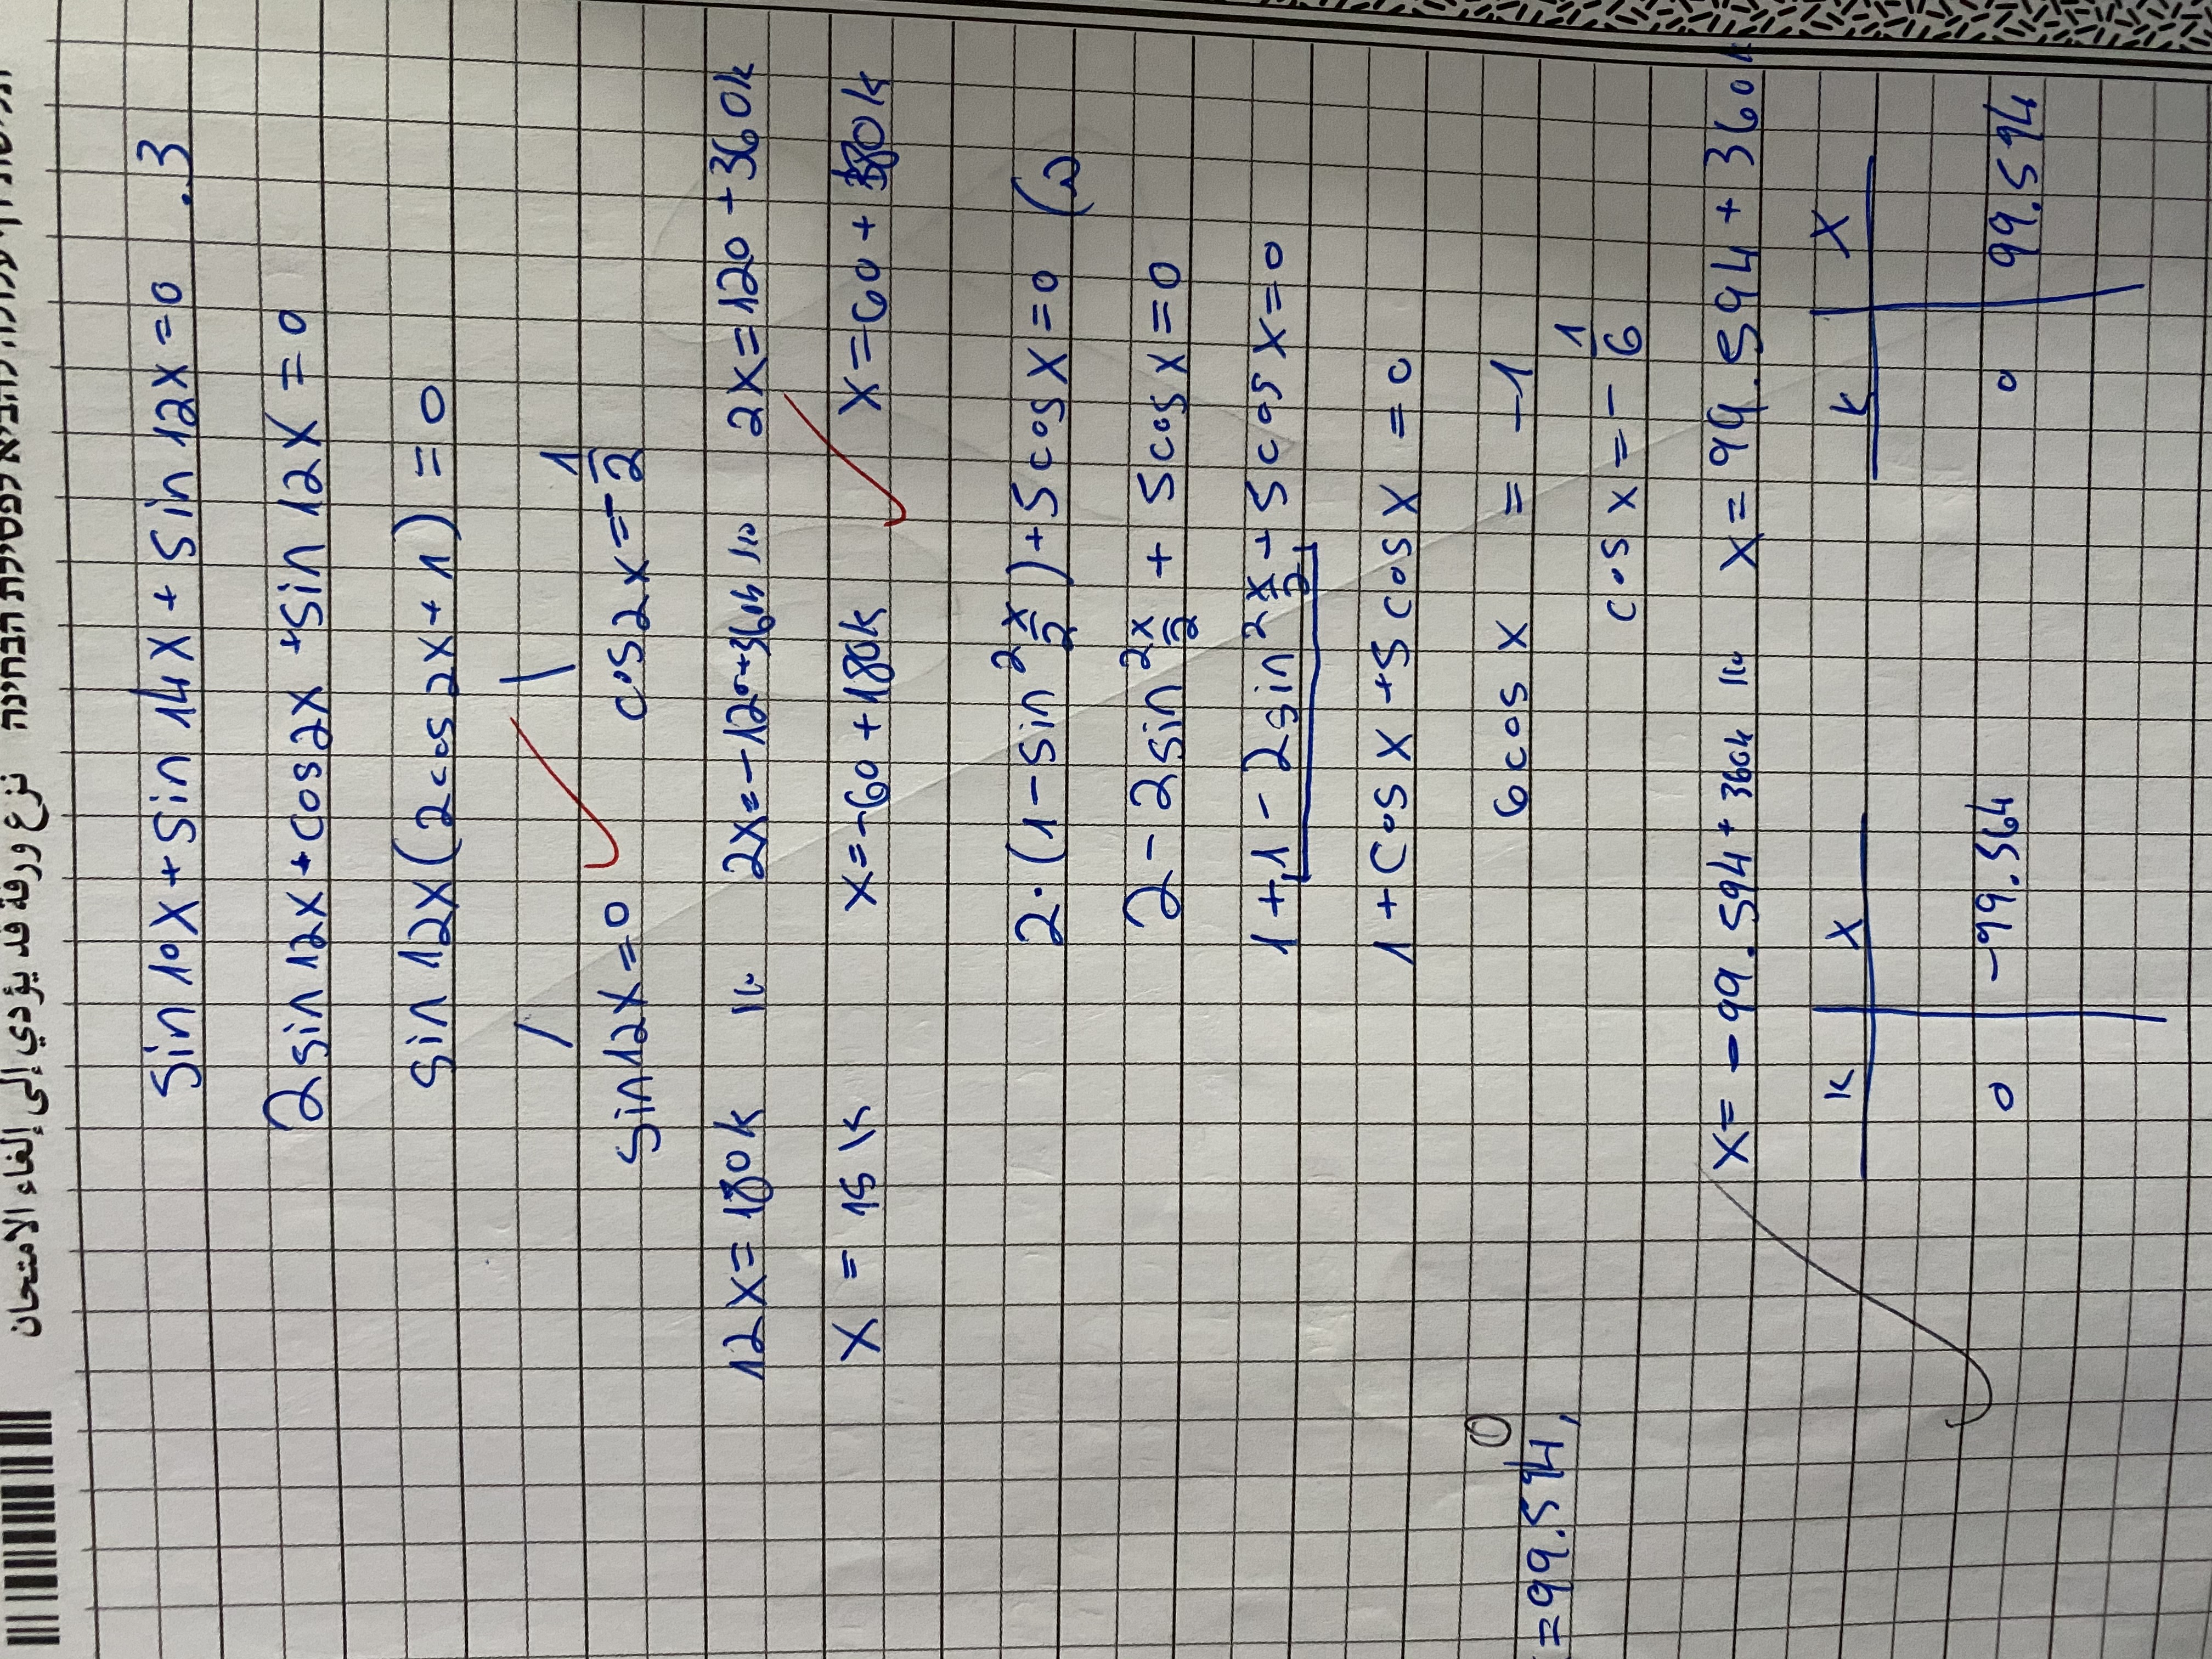 תלישת דף עלולה להביא לפסילת הבחינה نزع ورقة قد يؤدي إلى إلغاء الامتحان
sin 10x + sin 14x + sin 12x = 0 .3
2 sin 12x + cos 2x + sin 12x = 0
sin 12x (2 cos 2x + 1) = 0
sin 12x = 0 cos 2x = -1/2
12x = 180k או 2x = -120 + 360k או 2x = 120 + 360k
x = 15k x = -60 + 180k x = 60 + 180k
2·(1 - sin² x/2) + 5 cos x = 0
2 - 2 sin² x/2 + 5 cos x = 0
1 + 1 - 2 sin² x/2 + 5 cos x = 0
1 + cos x + 5 cos x = 0
6 cos x = -1
= 99.594,
cos x = -1/6
x = -99.594 + 360k או x = 99.594 + 360k
k x k x
0 -99.564 0 99.594